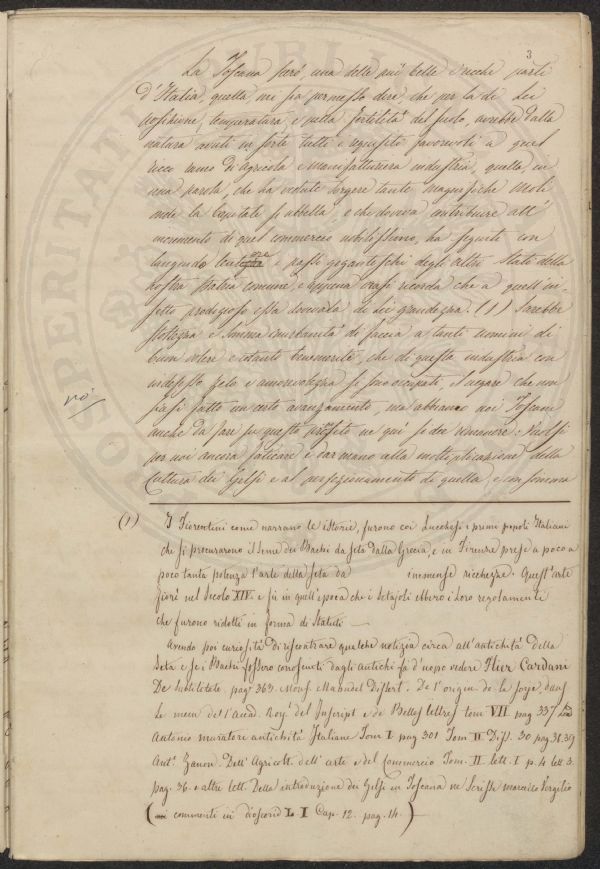 3
La Toscana però, una delle più belle e ricche parti
d'Italia, quella, mi sia permesso dire, che per la di Lei
posizione, temperatura, e pella fertilità del suolo, avrebbe dalla
natura avuti in sorte tutti e squisiti favorevoli a quel
ricco ramo di agricola e manifatturiera industria, quella, in
una parola, che ha veduto sorgere tante magnifiche moli
onde la Capitale si abbella, e che doveva contribuire all'
incremento di quel commercio nobilissimo, ha seguiti con
languendo i passi giganteschi degli altri Stati della
nostra Italia comune, e appena oggi ricorda che a quell'in-
setto prodigioso essa dovea la di Lei grandezza. (1) Sarebbe
stoltezza e somma inurbanità di faccia a tanti uomini di
buon volere e cotanto benemeriti, che di questa industria con
indefesso zelo e amorevolezza si sono occupati, il negare che non
siasi fatto un certo avanzamento, ma abbiamo noi Toscani
anche da fare su questo proposito ne qui si dee rimanere. Vuolsi
per noi ancora faticare e dar mano alla moltiplicazione della
Cultura dei Gelsi e al perfezionamento di quella, e in somma
(1) I Fiorentini come narrano le istorie, furono coi Lucchesi i primi popoli Italiani
che si procurarono il seme dei Bachi da seta dalla Grecia, e in Firenze prese a poco a
poco tanta potenza l'arte della Seta da immense ricchezze. Quest'arte
fiorì nel Secolo XIV. e fù in quell'epoca che i Setajoli ebbero i loro regolamenti
che furono ridotti in forma di Statuti —
Avendo poi curiosità di riscontrare qualche notizia circa all'antichità della
Seta e se i Bachi fossero conosciuti dagli antichi fa d'uopo vedere Hier Cardani
De Subtilitate. pag. 363. Mons. Mahudel Dissert. De l'origin de la soye, dans
le mem de l'Acad. Roy. del Inscript e de Belles lettres tom VII. pag 337
Antonio muratore antichità Italiane Tom I. pag 301 Tom II Diss. 30 pag 38.39
Ant. Zanon. Dell'Agricolt. dell'arte e del Commercio Tom. II. lett. I p. 4 lett. 3.
pag. 36. e altre lett. Della introduzione dei Gelsi in Toscana ne scrisse marcello Vergilio
( commenti in dioscorid L I Cap. 12. pag. 14. ) —